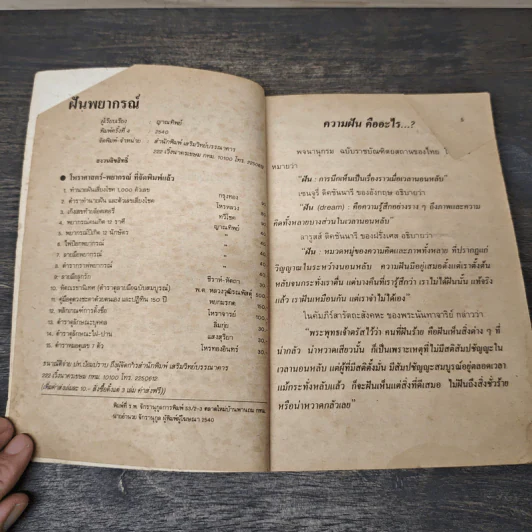 ฝันพยากรณ์
ผู้เรียบเรียง : ญาณทิพย์
พิมพ์ครั้งที่ 4 : 2540
จัดพิมพ์-จำหน่าย : สำนักพิมพ์ เสริมวิทย์บรรณาคาร
222 เวิ้งนาครเขษม กทม. 10100 โทร.
สงวนลิขสิทธิ์
● โหราศาสตร์-พยากรณ์ ที่จัดพิมพ์แล้ว
1. ทำนายฝันเสี่ยงโชค 1,000 ตัวเลข กรุงทอง
2. ตำราทำนายฝัน และตัวเลขเสี่ยงโชค โหรหลวง
3. เก็งเลขท้ายล็อตเตอรี่ ทวีโชค
4. พยากรณ์คนเกิด 12 ราศี ญาณทิพย์
5. พยากรณ์ปีเกิด 12 นักษัตร "
6. ไพ่ป๊อกพยากรณ์ "
7. ลายมือพยากรณ์ "
8. ตำรากราฟพยากรณ์ "
9. ลายมือลูกรัก
10. พิศเรขานิเทศ (ตำราดูลายมือฉบับสมบูรณ์)
11. คู่มือดูดวงชะตาด้วยตนเอง และปฏิทิน 150 ปี
12. หลักเกณฑ์การตั้งชื่อ โหราจารย์
13. ตำราดูลักษณะบุคคล
14. ตำราดูลักษณะไฝ-ปาน แสงสุริยา
15. ตำราหมอดูเลข 7 ตัว
222 เวิ้งนาครเขษม กทม. 10100 โทร.
ความฝัน คืออะไร...?
พจนานุกรม ฉบับราชบัณฑิตยสถานของไทย
หมายว่า
"ฝัน : การนึกเห็นเป็นเรื่องราวเมื่อเวลานอนหลับ"
เซนจูรี่ ดิคชันนารี ของอังกฤษ อธิบายว่า
"ฝัน (dream) : คือความรู้สึกอย่างราง ๆ ถึงภาพและความ
คิดทั้งหลายบางส่วนในเวลานอนหลับ"
ลารูสส์ ดิคชันนารี ของฝรั่งเศส อธิบายว่า
"ฝัน : หมวดหมู่ของความคิดและภาพทั้งหลาย ที่ปรากฏแก่
วิญญาณในระหว่างนอนหลับ ความฝันมีอยู่เสมอตั้งแต่เราตั้งต้น
หลับจนกระทั่งเราตื่น แต่บางคนที่เรารู้สึกว่า เราไม่ได้ฝันนั้น แท้จริง
แล้ว เราฝันเหมือนกัน แต่เราจำไม่ได้เอง"
ในคัมภีร์สารัตถะสังคหะ ของพระนันทาจารย์ กล่าวว่า
"พระพุทธเจ้าตรัสไว้ว่า คนที่ฝันร้าย คือฝันเห็นสิ่งต่าง ๆ ที่
น่ากลัว น่าหวาดเสียวนั้น ก็เป็นเพราะเหตุที่ไม่มีสติสัมปชัญญะใน
เวลานอนหลับ แต่ผู้ที่มีสติตั้งมั่น มีสัมปชัญญะสมบูรณ์อยู่ตลอดเวลา
แม้กระทั่งหลับแล้ว ก็จะฝันเห็นแต่สิ่งที่ดีเสมอ ไม่ฝันถึงสิ่งชั่วร้าย
หรือน่าหวาดกลัวเลย"